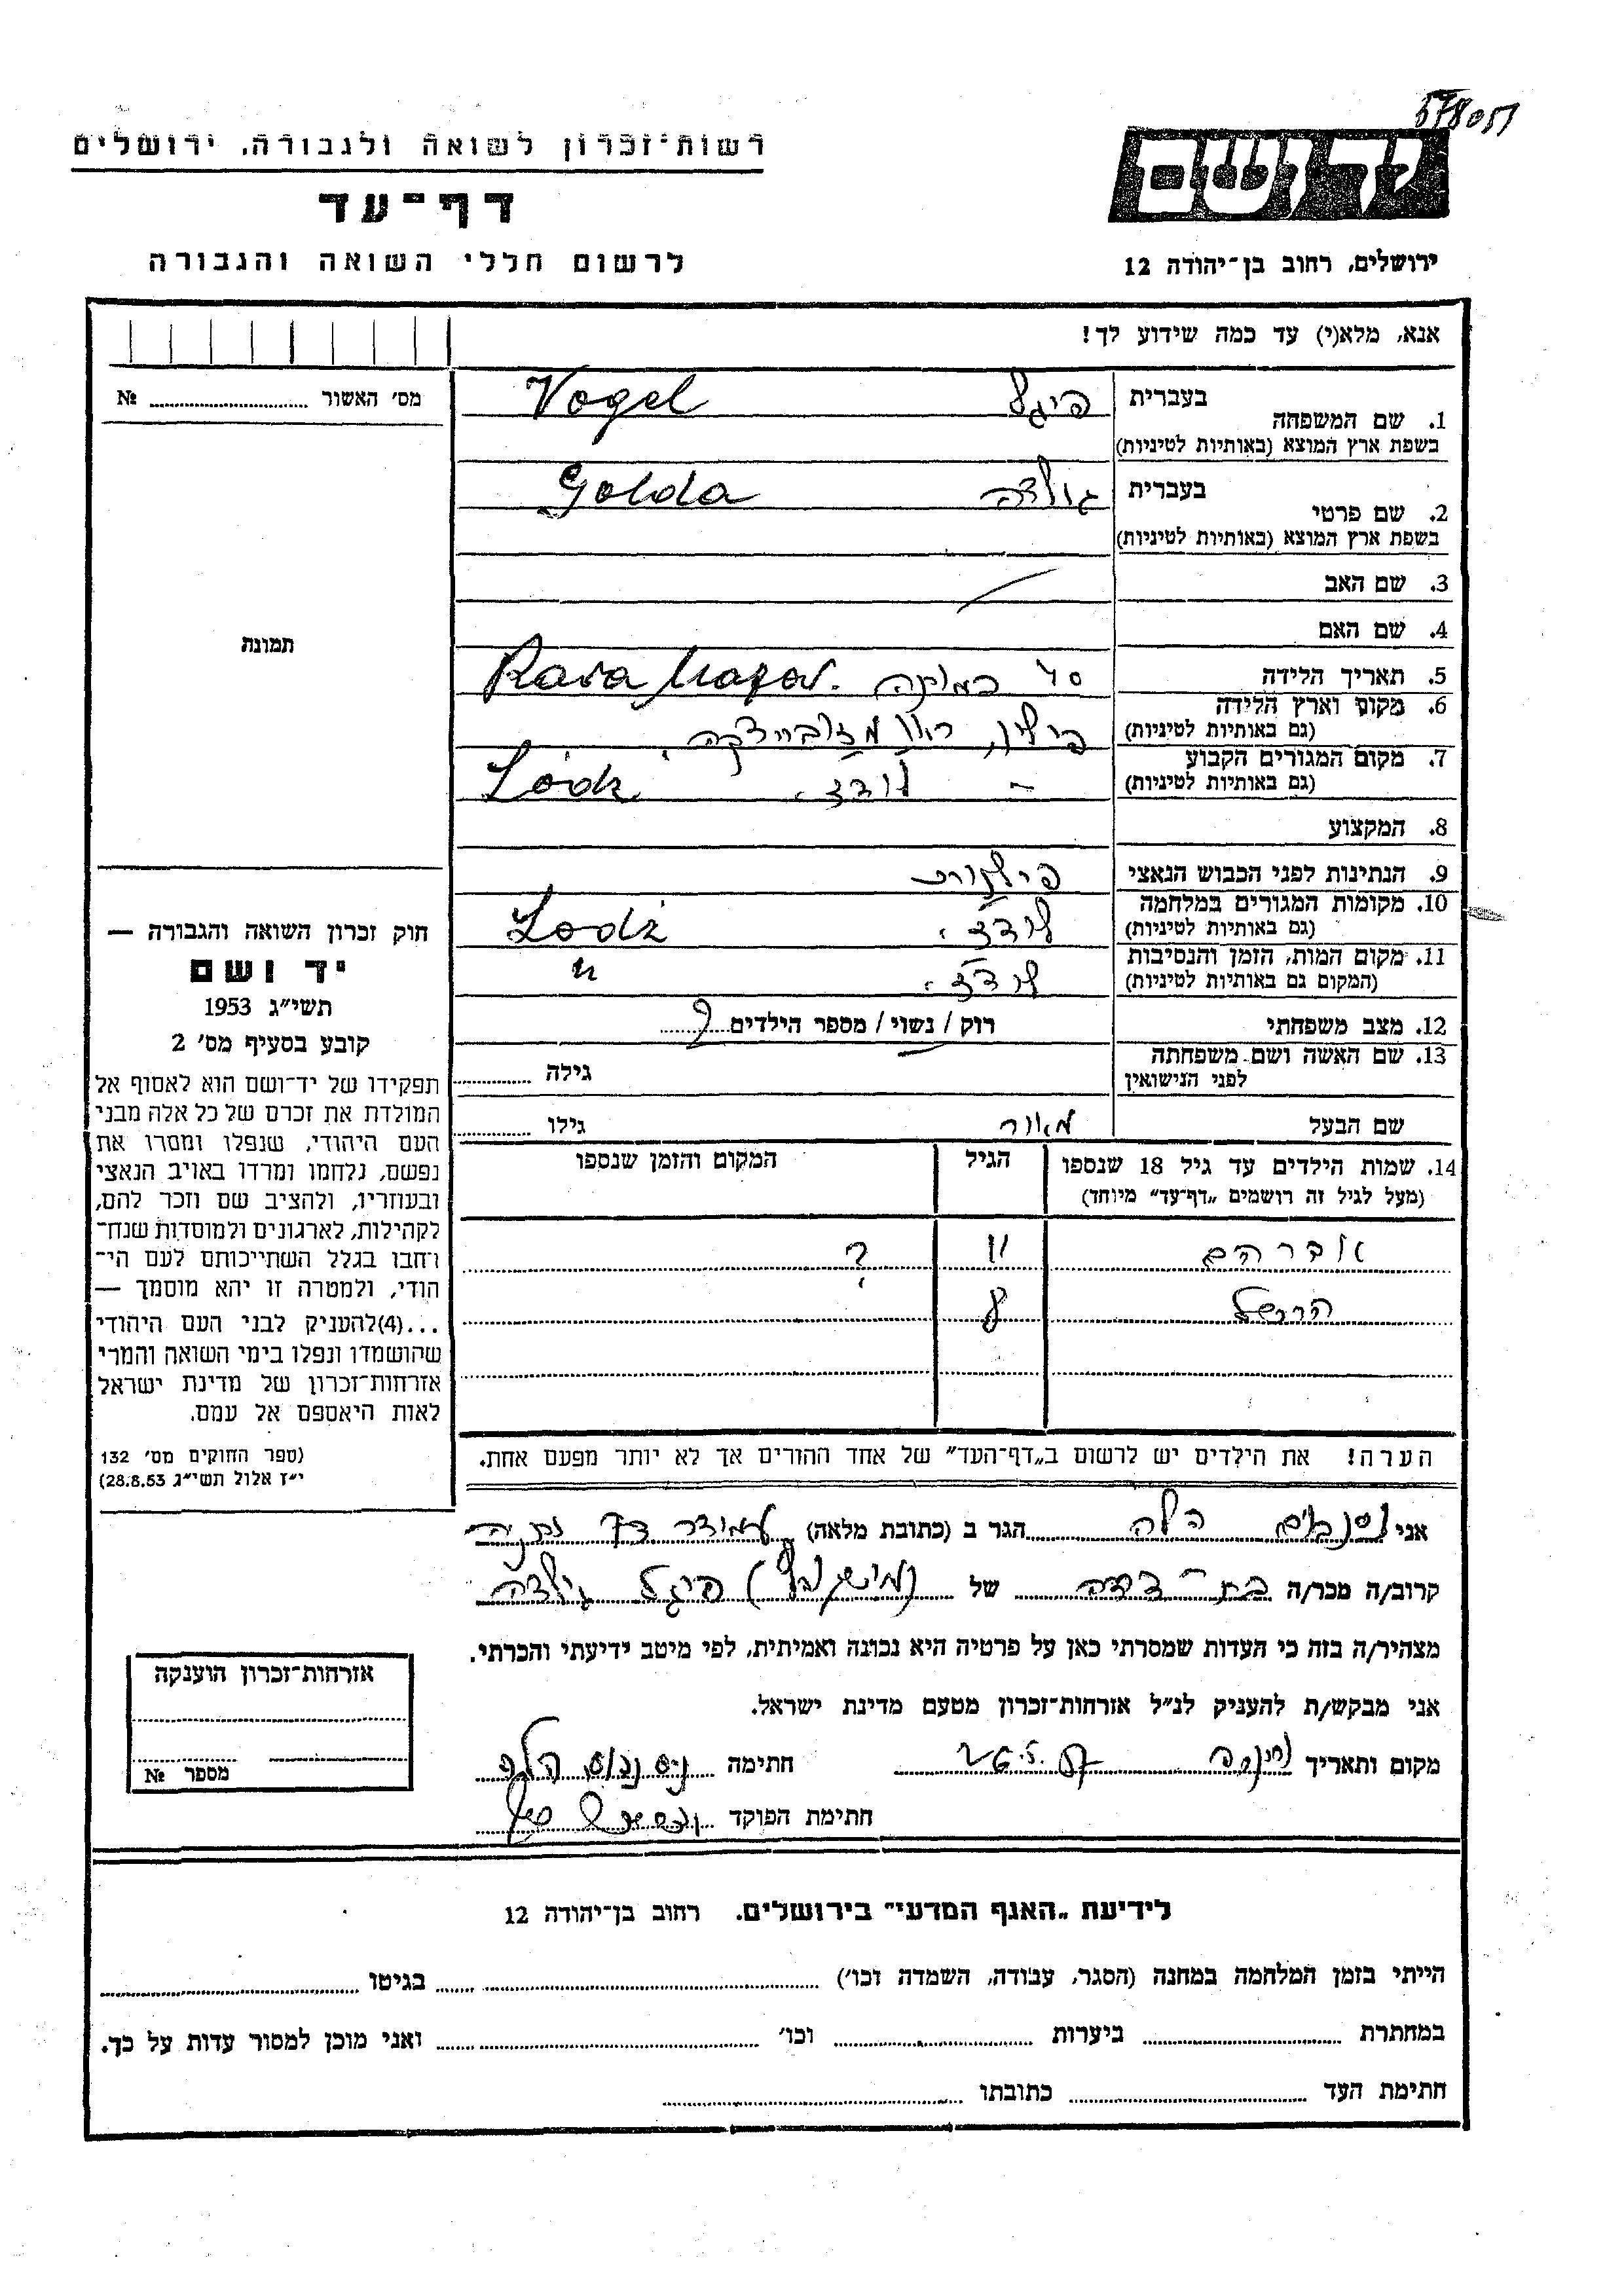 578051
יד ושם
ירושלים, רחוב בן־יהודה 12
רשות־זכרון לשואה ולגבורה, ירושלים
דף־עד
לרשום חללי השואה והגבורה
אנא, מלא(י) עד כמה שידוע לך!
מס׳ האשור ........ №
תמונה
חוק זכרון השואה והגבורה —
יד ושם
תשי״ג 1953
קובע בסעיף מס׳ 2
תפקידו של יד־ושם הוא לאסוף אל
המולדת את זכרם של כל אלה מבני
העם היהודי, שנפלו ומסרו את
נפשם, נלחמו ומרדו באויב הנאצי
ובעוזריו, ולהציב שם וזכר להם,
לקהילות, לארגונים ולמוסדות שנח־
רחבו בגלל השתייכותם לעם הי־
הודי, ולמטרה זו יהא מוסמך —
...(4)להעניק לבני העם היהודי
שהושמדו ונפלו בימי השואה והמרי
אזרחות־זכרון של מדינת ישראל
לאות היאספם אל עמם.
(ספר החוקים מס׳ 132
י״ז אלול תשי״ג 28.8.53)
בעברית פיגל Vogel
1. שם המשפחה
בשפת ארץ המוצא (באותיות לטיניות)
בעברית גולדה Golda
2. שם פרטי
בשפת ארץ המוצא (באותיות לטיניות)
3. שם האב
4. שם האם
5. תאריך הלידה 40 Rava Mazov.
6. מקום וארץ הלידה
(גם באותיות לטיניות) פולין, ראוו מזובייצקה.
7. מקום המגורים הקבוע
(גם באותיות לטיניות) לודז׳ Łódź
8. המקצוע
9. הנתינות לפני הכבוש הנאצי פולנית
10. מקומות המגורים במלחמה
(גם באותיות לטיניות) לודז׳ Łodź
11. מקום המות, הזמן והנסיבות
(המקום גם באותיות לטיניות) לודז׳ "
12. מצב משפחתי רוק / נשוי / מספר הילדים 2
13. שם האשה ושם משפחתה
לפני הנישואין גילה
שם הבעל מאור גילו
14. שמות הילדים עד גיל 18 שנספו הגיל המקום והזמן שנספו
(מעל לגיל זה רושמים „דף־עד״ מיוחד)
אברהם 11 ?
הרשל 8
הערה! את הילדים יש לרשום ב„דף־העד״ של אחד ההורים אך לא יותר מפעם אחת.
אני ניסנבוים הלה הגר ב (כתובת מלאה) נתניה
קרוב/ה מכר/ה בת־דודה של פיגל גולדה
מצהיר/ה בזה כי העדות שמסרתי כאן על פרטיה היא נכונה ואמיתית, לפי מיטב ידיעתי והכרתי.
אני מבקש/ת להעניק לנ״ל אזרחות־זכרון מטעם מדינת ישראל.
מקום ותאריך נתניה חתימה ניסנבוים הלה
חתימת הפוקד
אזרחות־זכרון הוענקה
מספר №
לידיעת „האגף המדעי״ בירושלים. רחוב בן־יהודה 12
הייתי בזמן המלחמה במחנה (הסגר, עבודה, השמדה וכו׳) ........ בגיטו ........
במחתרת ........ ביערות ........ וכו׳ ........ ואני מוכן למסור עדות על כך.
חתימת העד ........ כתובתו ........